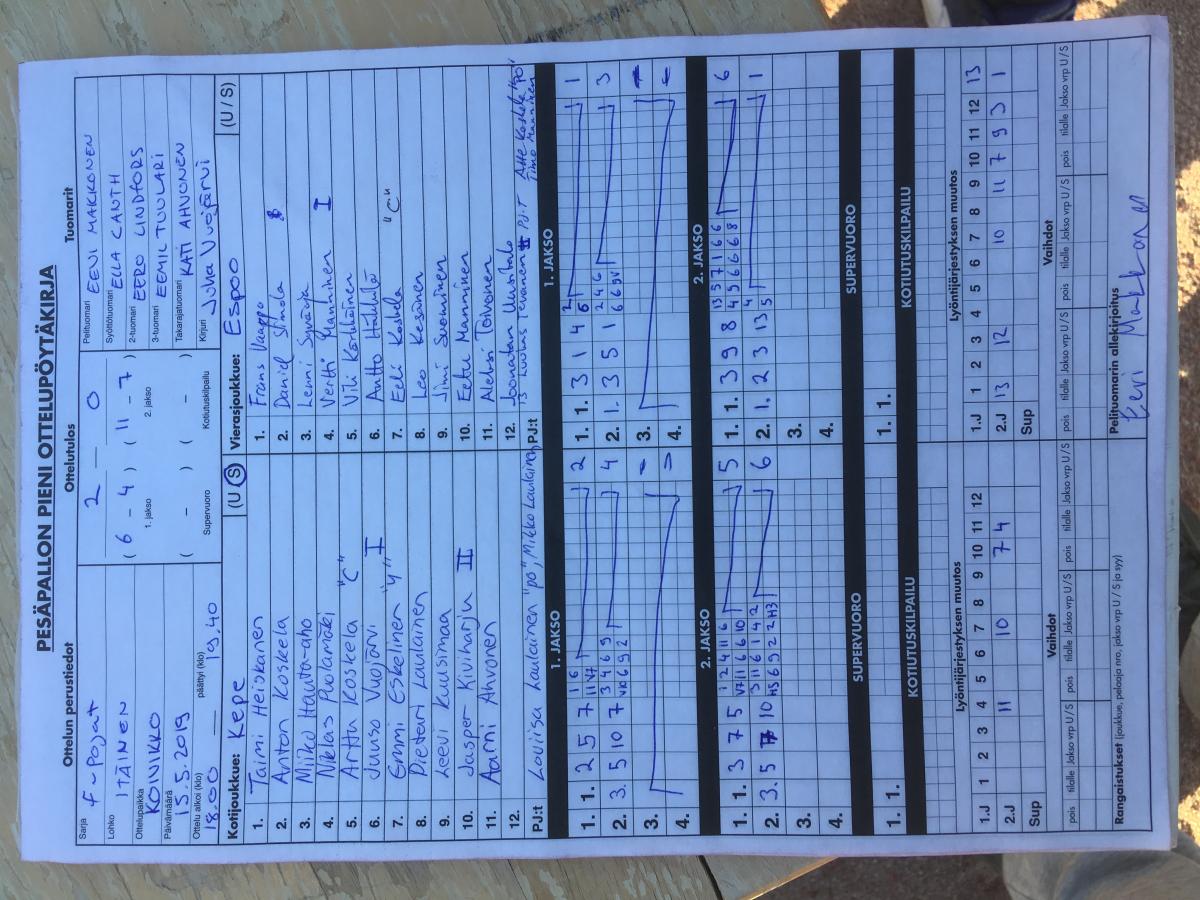 PESÄPALLON PIENI OTTELUPÖYTÄKIRJA
Ottelun perustiedot
Ottelutulos
Tuomarit
Sarja F-Pojat
Lohko ITÄINEN
Ottelupaikka KOIVIKKO
Päivämäärä 15.5.2019
Ottelu alkoi (klo) 18.00 päättyi (klo) 19.40
2 — 0
( 6 - 4 ) ( 11 - 7 )
1. jakso 2. jakso
( - ) ( - )
Supervuoro Kotiutuskilpailu
Pelituomari EEVI MAKKONEN
Syöttötuomari ELLA CANTH
2-tuomari EERO LINDFORS
3-tuomari EEMIL TUULARI
Takarajatuomari KATI AHVONEN
Kirjuri Juha Vuojärvi
Kotijoukkue: KePe (U / S)
1. Taimi Heiskanen
2. Anton Koskela
3. Miiko Hauta-aho
4. Niklas Puolamäki
5. Arttu Koskela "C"
6. Juuso Vuojärvi I
7. Emmi Eskelinen "4"
8. Pietari Laulainen
9. Leevi Kuusimaa
10. Jasper Kiviharju III
11. Aarni Ahvonen
12.
PJ:t Loviisa Laulainen "PO", Mikko Laulainen
Vierasjoukkue: Espoo (U / S)
1. Frans Vaappo
2. Daniel Simola 8
3. Lenni Syväoja
4. Vertti Manninen I
5. Vili Kärkkäinen
6. Antto Häkkilä
7. Eeli Koskela "C"
8. Leo Kesonen
9. Jimi Suominen
10. Eetu Manninen
11. Aleksi Toivonen
12. Joonatan Uusitalo
13 Kuutas Tervanen
PJ:t Atte Koskela "PO"
Timo Manninen
1. JAKSO
1. JAKSO
1. 1. 2 5 7 2
2. 3. 5 10 7 4
3. -
4. =
1. 1. 3 1 4 1
2. 1. 3 5 1 3
3.
4.
2. JAKSO
2. JAKSO
1. 1. 3 7 5 5
2. 3. 5 10 6
3.
4.
1. 1. 3 9 8 6
2. 1. 2 3 13 1
3.
4.
SUPERVUORO
SUPERVUORO
1. 1.
1. 1.
KOTIUTUSKILPAILU
KOTIUTUSKILPAILU
Lyöntijärjestyksen muutos
1.J 1 2 3 4 5 6 7 8 9 10 11 12
2.J 11 10 7 4
Sup
Lyöntijärjestyksen muutos
1.J 1 2 3 4 5 6 7 8 9 10 11 12 13
2.J 13 12 10 11 7 9 3 1
Sup
Vaihdot
pois tilalle Jakso vrp U / S pois tilalle Jakso vrp U / S
Vaihdot
pois tilalle Jakso vrp U / S pois tilalle Jakso vrp U / S
Rangaistukset (joukkue, pelaaja nro, jakso vrp U / S ja syy)
Pelituomarin allekirjoitus
Eevi Makkonen